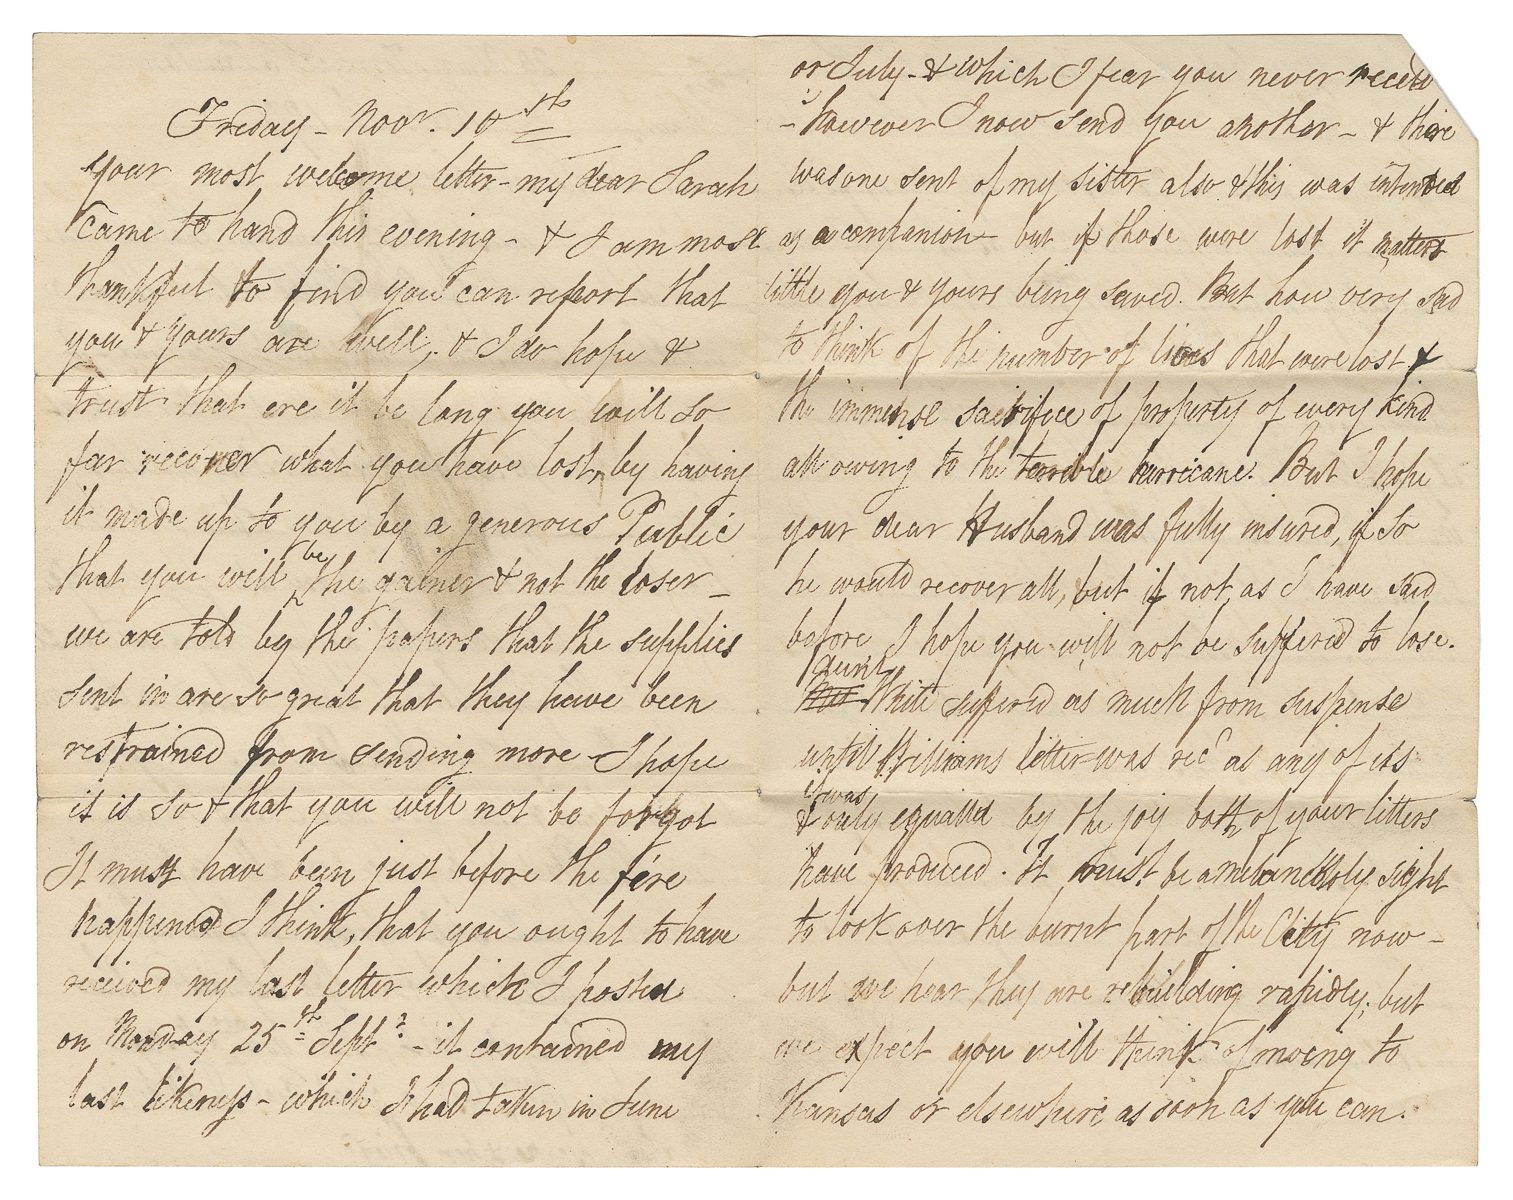 Friday - Novr. 10th
your most welcome letter - my dear Sarah
came to hand this evening - & I am most
thankful to find you can report that
you & yours are well; & I do hope &
trust that ere it be long you will so
far recover what you have lost, by having
it made up to you by a generous Public
that you will be the gainer & not the loser -
we are told by the papers that the supplies
sent in are so great that they have been
restrained from sending more - I hope
it is so & that you will not be forgot
It must have been just before the fire
happened I think, that you ought to have
received my last letter which I posted
on Monday 25th Sept - it contained my
last likeness - which I had taken in June
or July - & which I fear you never received
- however I now send you another - & there
was one sent of my sister also & this was intended
as a companion - but if those were lost it matters
little you & yours being saved. But how very sad
to think of the number of lives that were lost &
the immense sacrifice of property of every kind
all owing to the terrible hurricane. But I hope
your dear Husband was fully insured, if so
he would recover all, but if not, as I have said
before I hope you will not be suffered to lose.
Aunt White suffered as much from suspense
until Williams letter was recd as any of us
& it was only equalled by the joy both of your letters
have produced. It must be a melancholy sight
to look over the burnt part of the City now -
but we hear they are rebuilding rapidly; but
we expect you will think of moving to
Kansas or elsewhere as soon as you can.